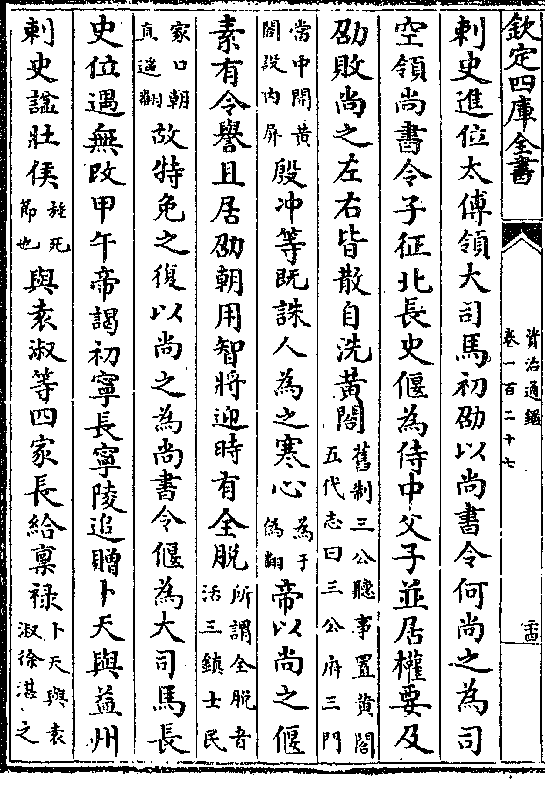 欽定四庫全書
資治通鑑
卷一百二十七
刺史進位太傅領大司馬初劭以尚書令何尚之為司
空領尚書令子征北長史偃為侍中父子並居權要及
劭敗尚之左右皆散自洗黃閤舊制三公聽事置黃閤
五代志曰三公府三門
當中開黃
閤設内屏殷冲等既誅人為之寒心為于
偽翻帝以尚之偃
素有令譽且居劭朝用智將迎時有全脱所謂全脱者
活三鎮士民
家口朝
直遥翻故特免之復以尚之為尚書令偃為大司馬長
史位遇無改甲午帝謁初寧長寧陵追贈卜天與益州
刺史諡壯侯旌死
節也與袁淑等四家長給禀禄卜天與袁
淑徐湛之